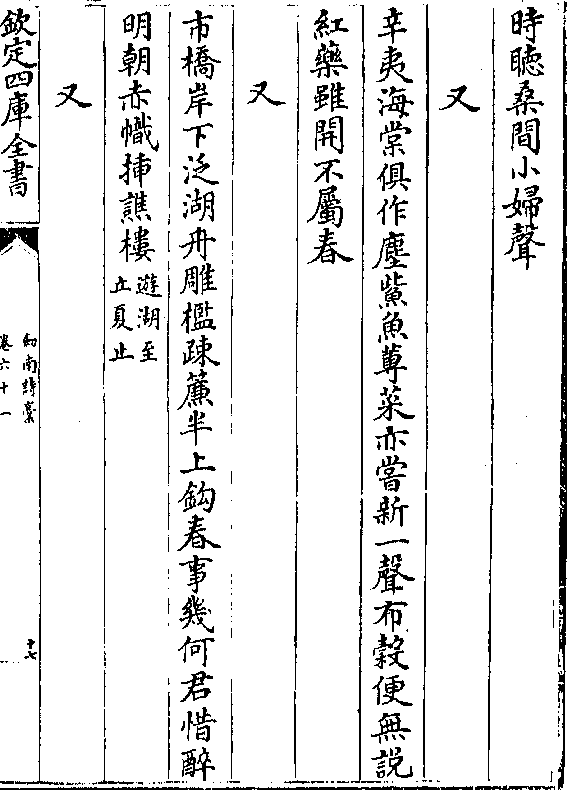 時聴桑間小婦聲
又
辛夷海棠俱作塵鮆魚蓴菜亦嘗新一聲布穀便無説
紅藥雖開不屬春
又
市橋岸下泛湖舟雕檻疎簾半上鈎春事幾何君惜醉
明朝赤幟挿譙樓遊湖至立夏止
又
欽定四庫全書
劍南詩稾
卷六十一
十七